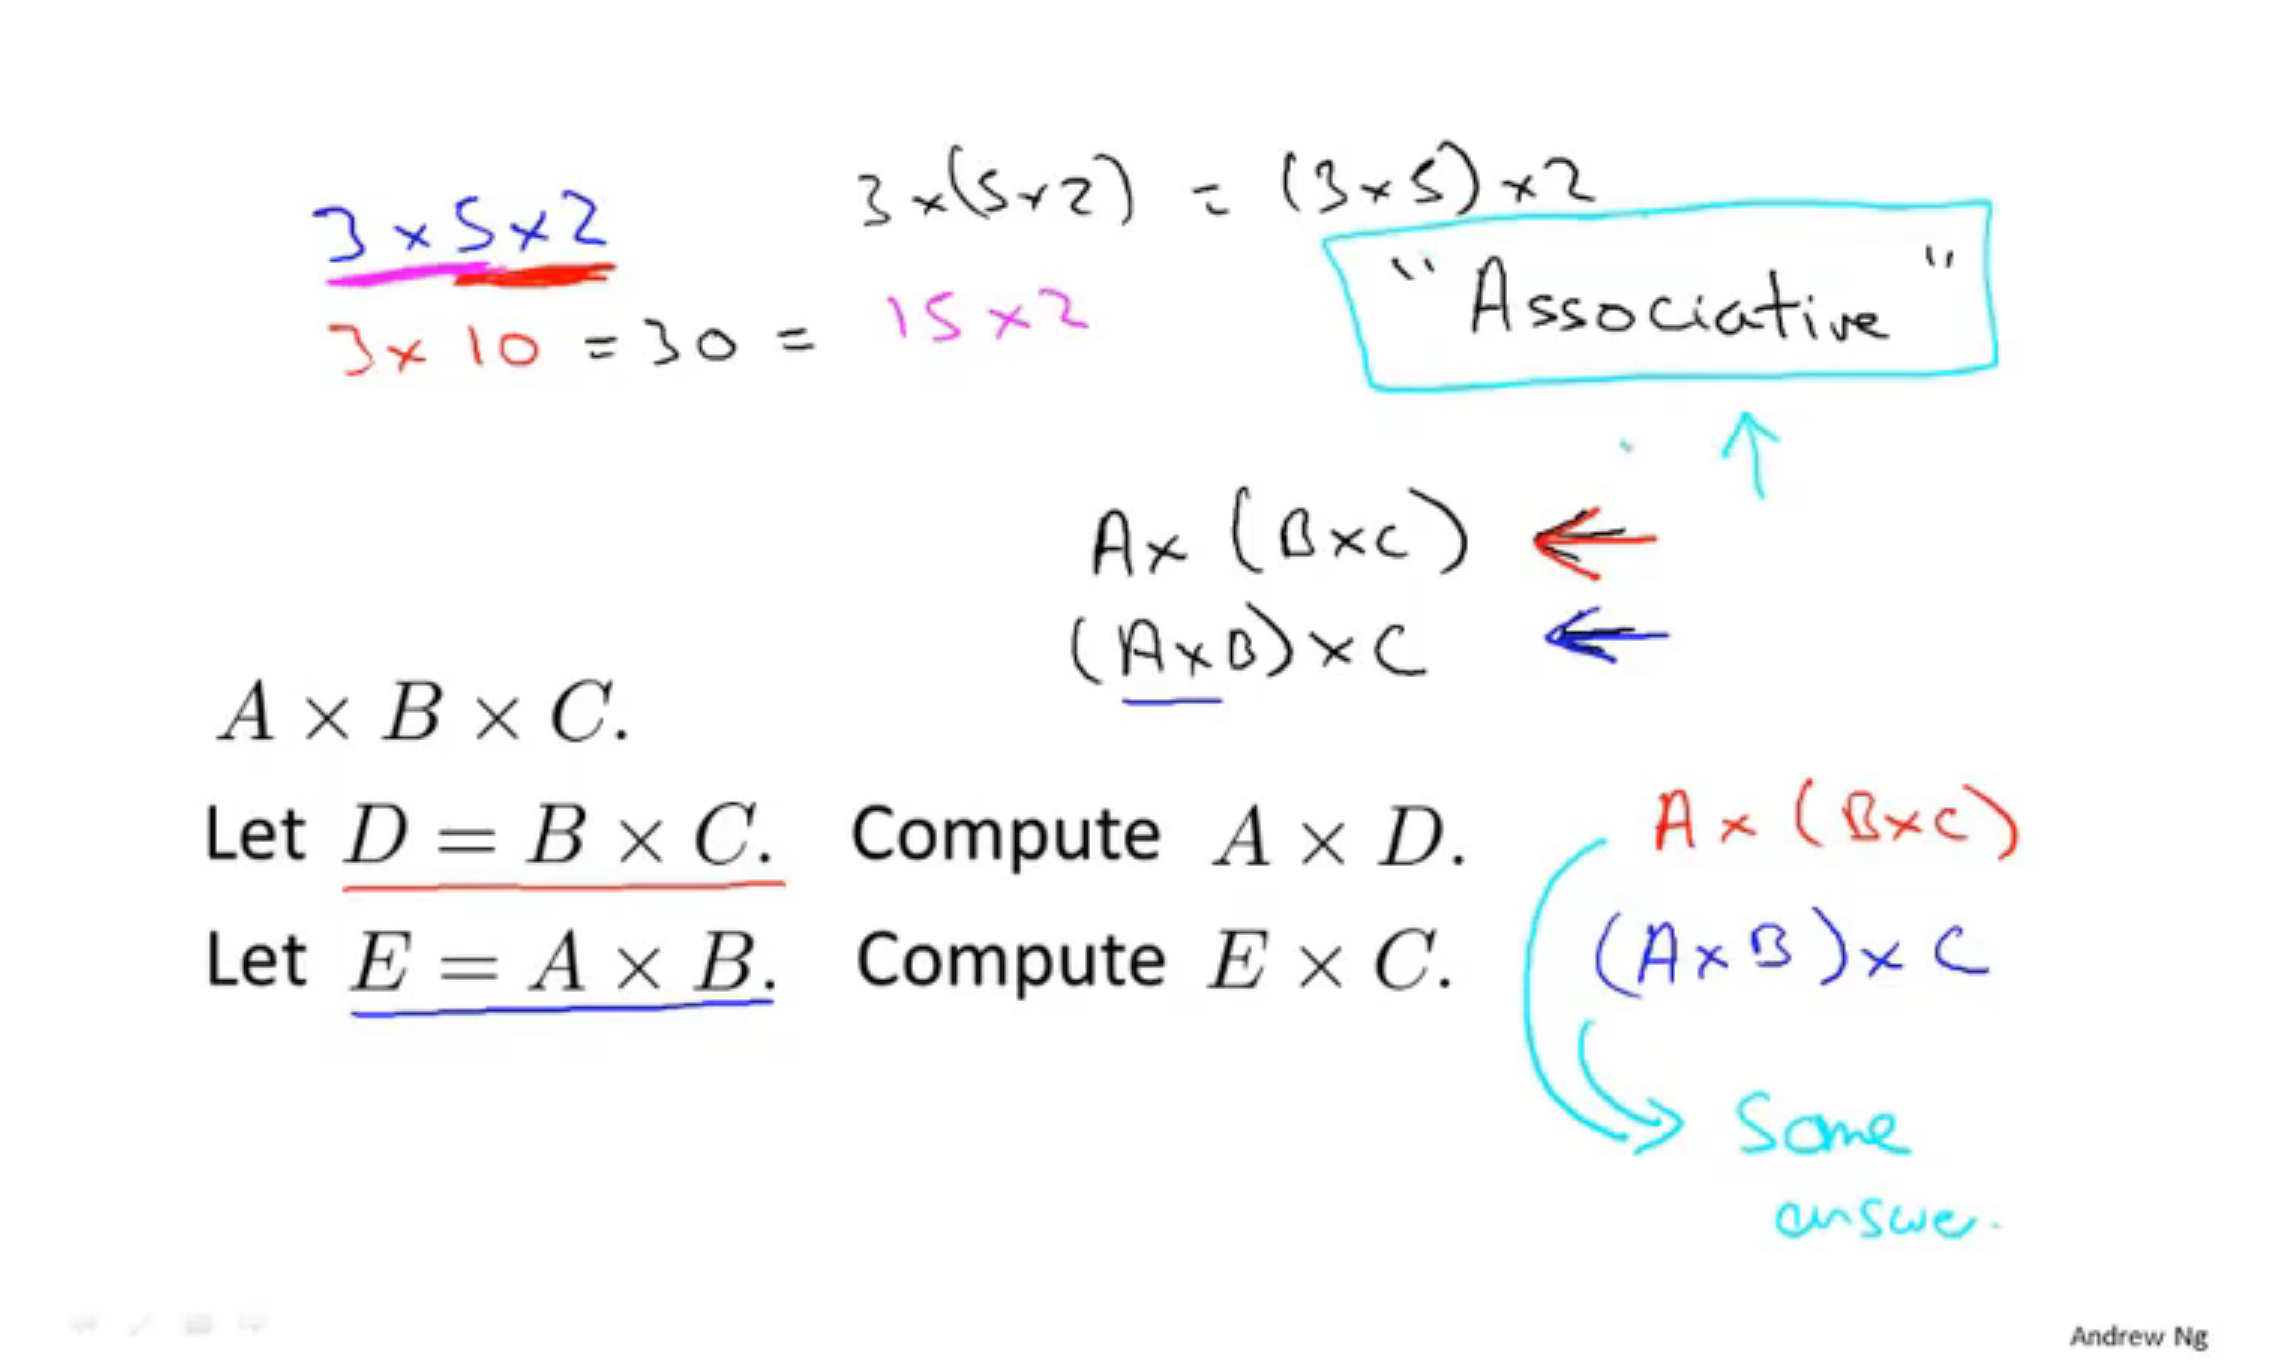 3 × 5 × 2
3 × (5 × 2) = (3 × 5) × 2
3 × 10 = 30 = 15 × 2
" Associative "
A × (B × C)
(A × B) × C
A × B × C.
Let D = B × C. Compute A × D.
A × (B × C)
Let E = A × B. Compute E × C.
(A × B) × C
Same
answer.
Andrew Ng